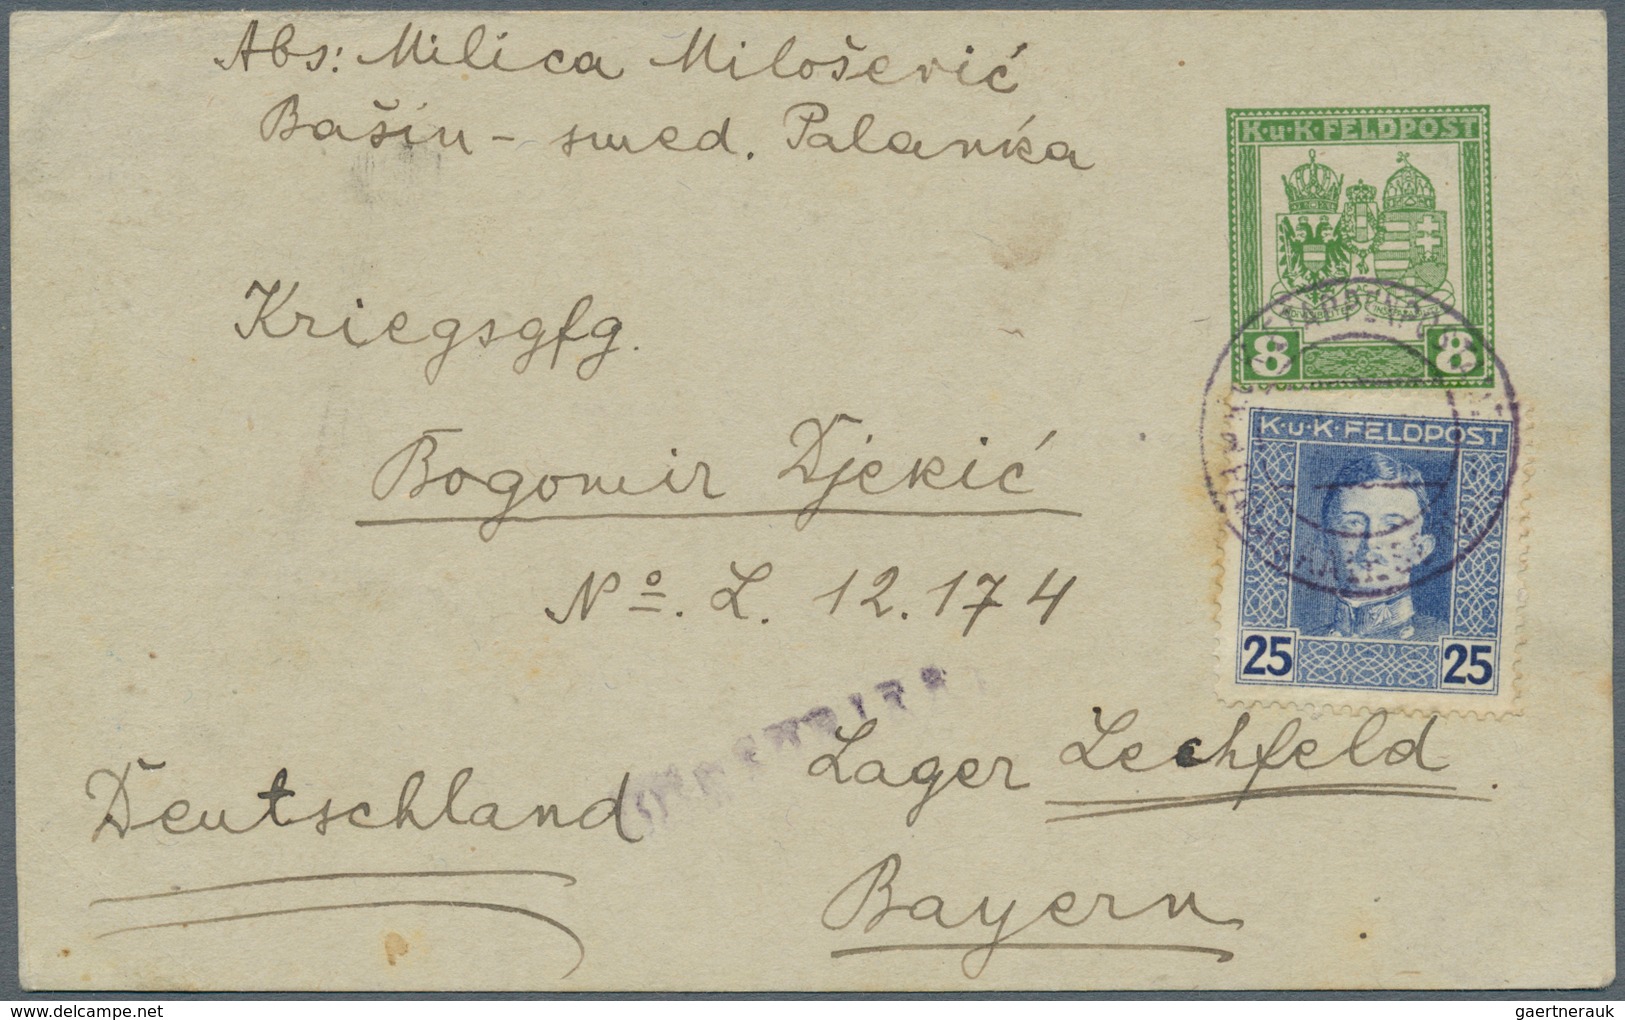 Abs: Milica Milošević
Bašin - smed. Palanka
K·u·K·FELDPOST
8 8
Kriegsgfg.
Bogomir Djekić
K·u·K·FELDPOST
25 25
Nº. L. 12.174
Lager Lechfeld.
Deutschland
Bayern
gaertnerauk